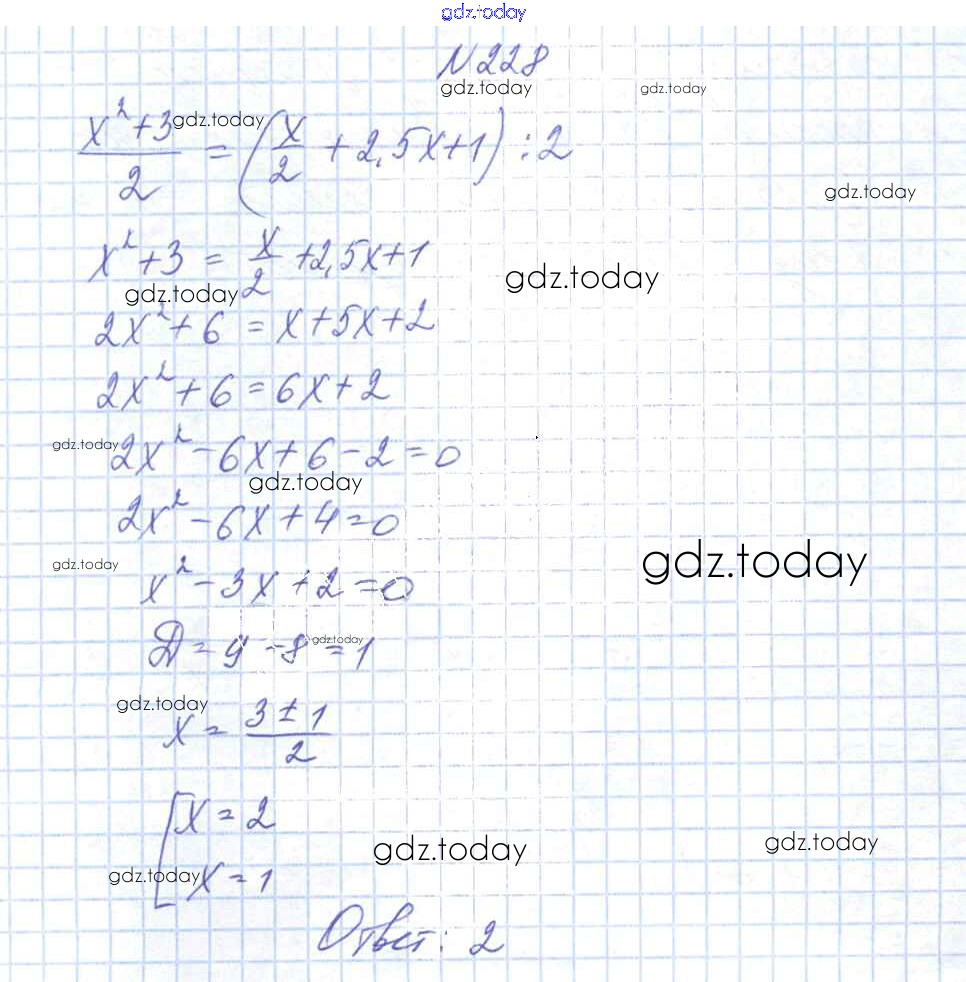 gdz.today
№228
gdz.today gdz.today
(x²+3)/2 = (x/2 + 2,5x+1) : 2
gdz.today
gdz.today
x²+3 = x/2 +2,5x+1
gdz.today
gdz.today
2x²+6 = x+5x+2
2x²+6 = 6x+2
gdz.today
2x²-6x+6-2=0
gdz.today
2x²-6x+4=0
gdz.today
gdz.today
x²-3x+2=0
D=9-8=1
gdz.today
gdz.today
x = (3±1)/2
[x=2
gdz.today
gdz.today
gdz.today
x=1
Ответ: 2